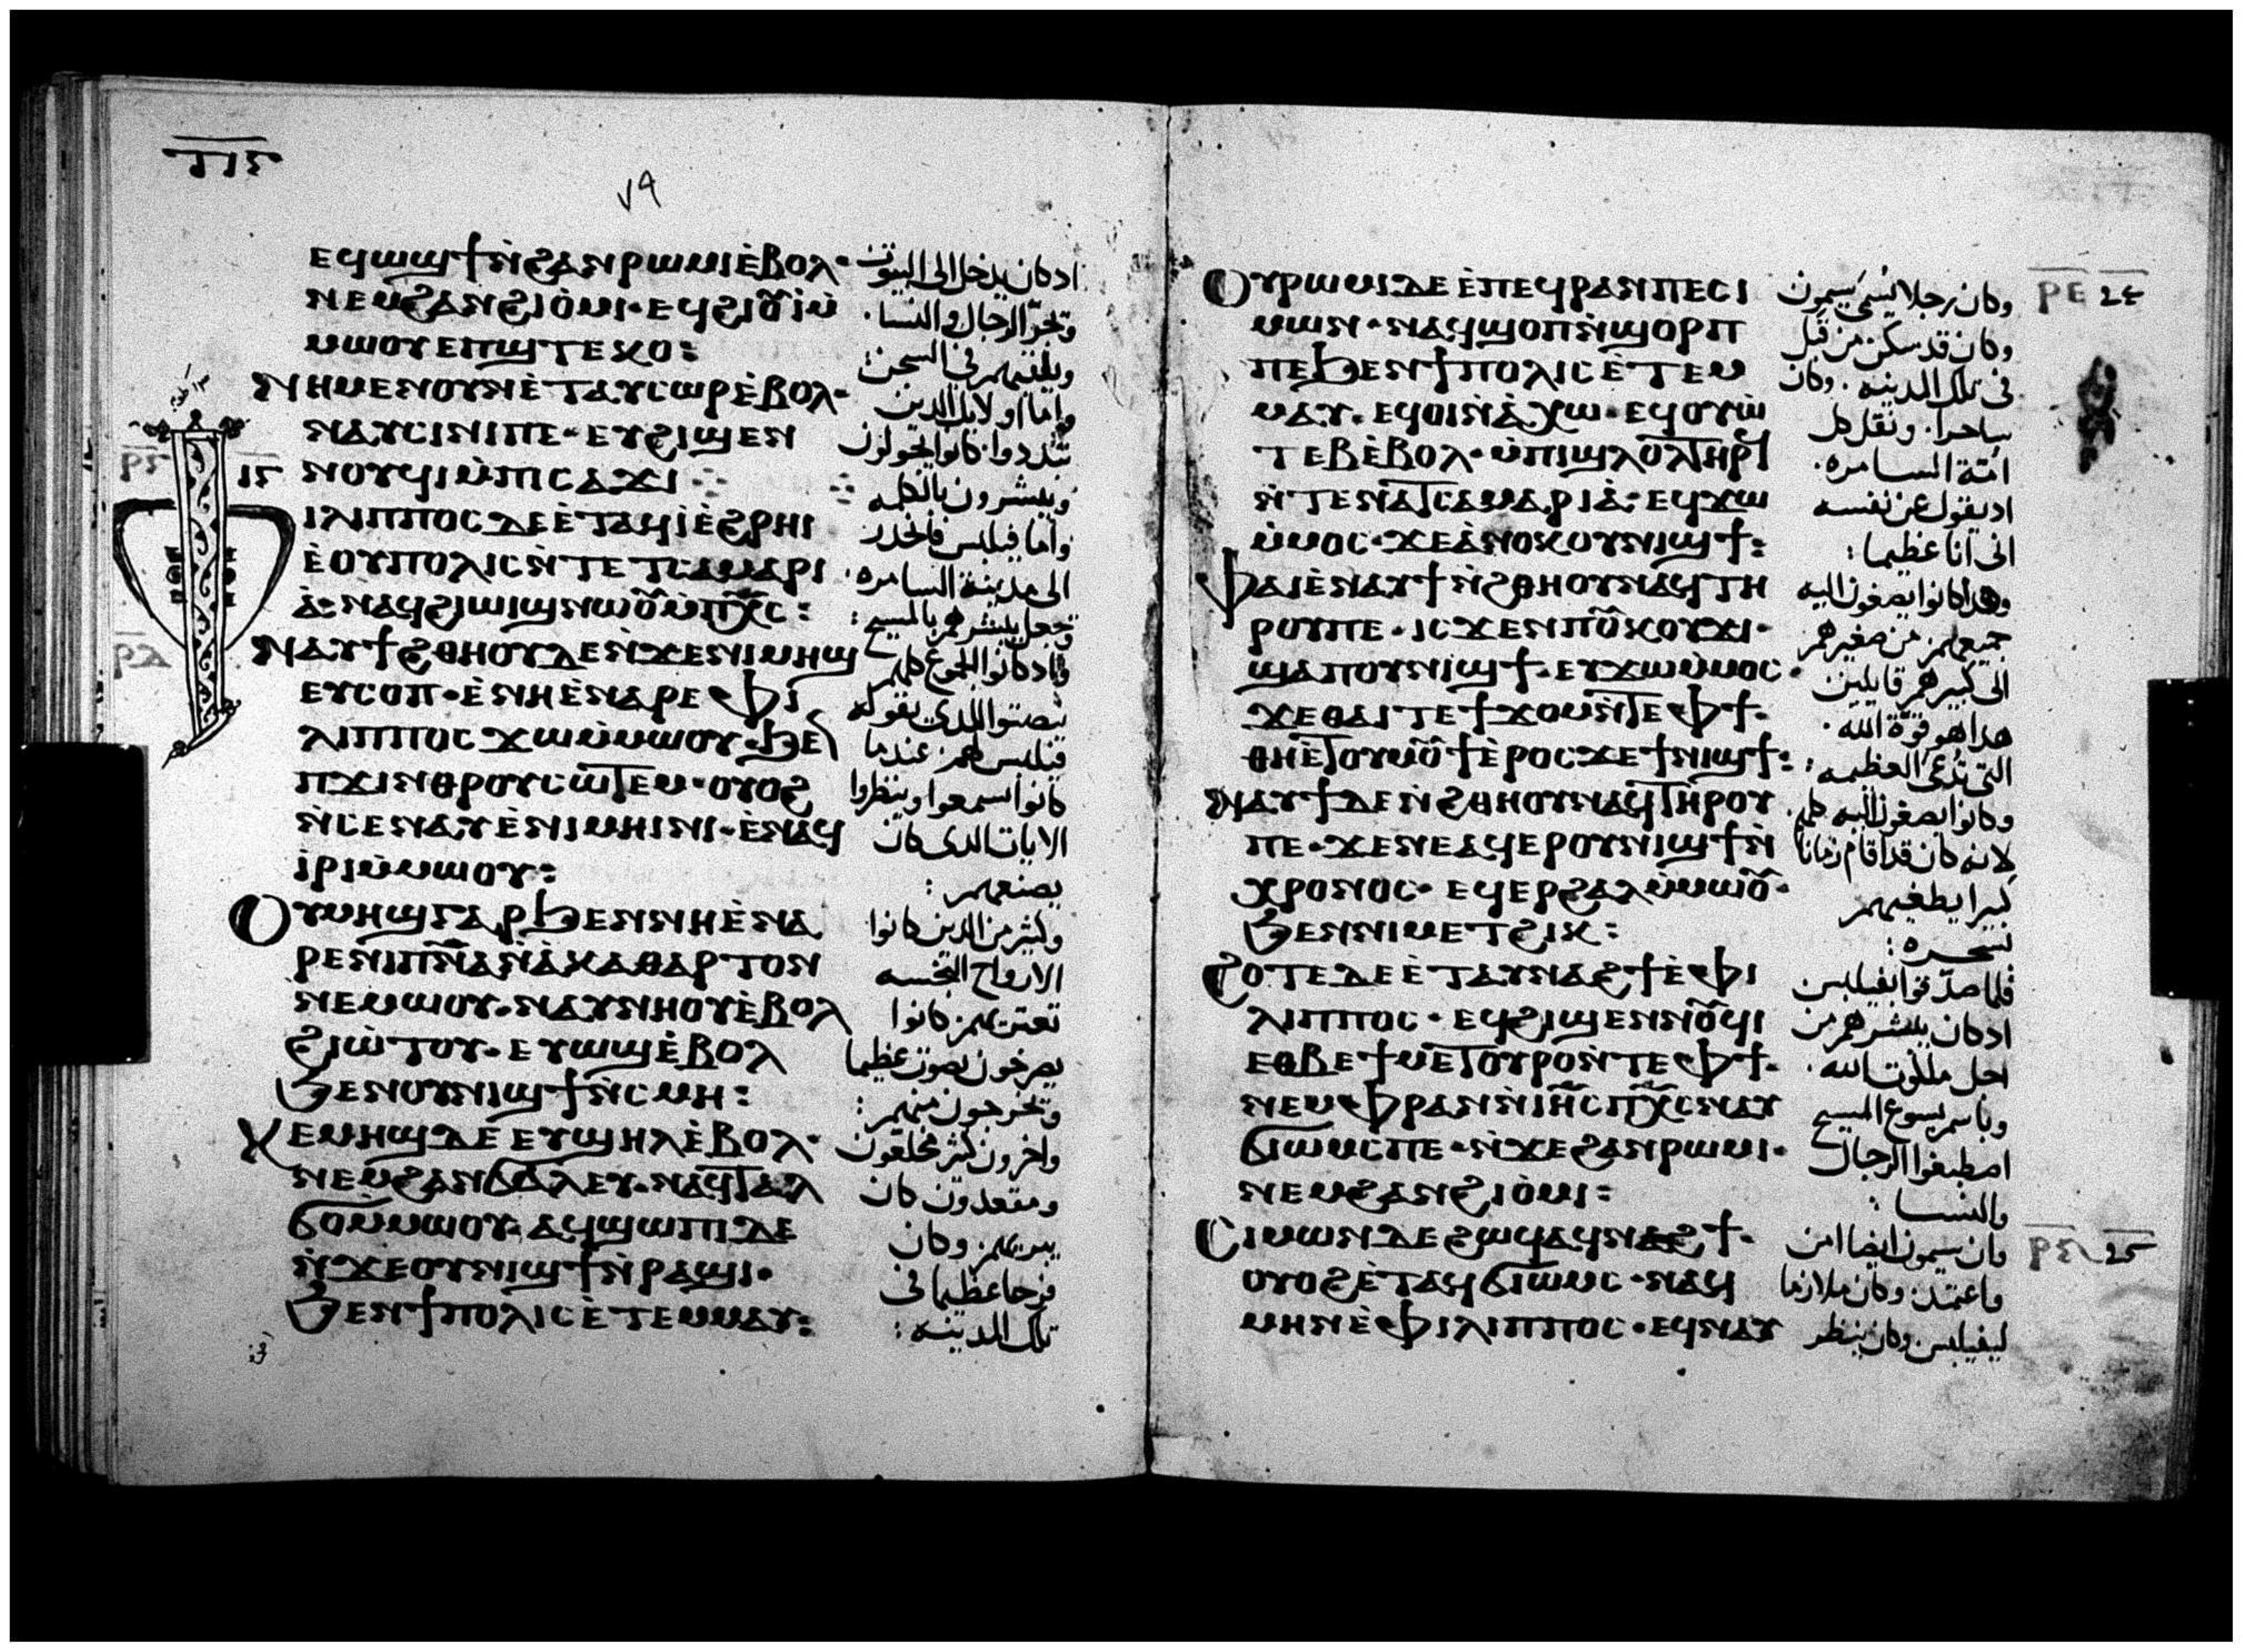 ٧٩
ⲉϥϣϣϯⲛ̀ϩⲁⲛⲣⲱⲙⲓⲉ̀ⲃⲟⲗ·
ⲛⲉⲙϩⲁⲛϩⲓⲟ̀ⲙⲓ·ⲉϥϩⲓⲟⲩ̀ⲓⲙ̀
ⲙⲱⲟⲩⲉⲡϣⲧⲉⲕⲟ:
ⲛⲏⲙⲉⲛⲟⲩⲛⲉ̀ⲧⲁⲩⲥⲱⲣⲉ̀ⲃⲟⲗ·
ⲛⲁⲩⲥⲓⲛⲓⲡⲉ·ⲉⲩϩⲓϣⲉⲛ
ⲛⲟⲩϥⲓⲙ̀ⲡⲓⲥⲁϫⲓ
ⲓⲗⲓⲡⲡⲟⲥⲇⲉⲉ̀ⲧⲁϥⲓ̀ⲉ̀ϩⲣⲏⲓ
ⲉ̀ⲟⲩⲡⲟⲗⲓⲥⲛ̀ⲧⲉⲧⲥⲁⲙⲁⲣⲓ
ⲁ̀·ⲛⲁϥϩⲓⲱⲓϣⲛⲱⲟⲩⲙ̀ⲡⲭ̅ⲥ̅:
ⲛⲁⲩϯϩⲑⲏⲟⲩⲇⲉⲛ̀ϫⲉⲛⲓⲙⲏϣ
ⲉⲩⲥⲟⲡ·ⲉ̀ⲛⲏⲉ̀ⲛⲁⲣⲉⲫⲓ
ⲗⲓⲡⲡⲟⲥϫⲱⲙ̀ⲙⲱⲟⲩ·ϧⲉⲛ
ⲡϫⲓⲛⲑⲣⲟⲩⲥⲱⲧⲉⲙ·ⲟⲩⲟϩ
ⲛ̀ⲥⲉⲛⲁⲩⲉ̀ⲛⲓⲙⲏⲓⲛⲓ·ⲉ̀ⲛⲁϥ
ⲓ̀ⲣⲓⲙ̀ⲙⲱⲟⲩ:
ⲟⲩⲙⲏϣⲅⲁⲣϧⲉⲛⲛⲏⲉ̀ⲛⲁ
ⲣⲉⲛⲓⲡⲛ̅ⲁ̅ⲛ̀ⲁ̀ⲕⲁⲑⲁⲣⲧⲟⲛ
ⲛⲉⲙⲱⲟⲩ·ⲛⲁⲩⲛⲏⲟⲩⲉ̀ⲃⲟⲗ
ϩⲓⲱ̀ⲧⲟⲩ·ⲉⲩⲱϣⲉ̀ⲃⲟⲗ
ϧⲉⲛⲟⲩⲛⲓϣϯⲛ̀ⲥⲙⲏ:
ⲭⲉⲙⲏϣⲇⲉⲉⲩϣⲏⲗⲉ̀ⲃⲟⲗ·
ⲛⲉⲙϩⲁⲛϭⲁⲗⲉⲩ·ⲛⲁϥⲧⲁⲗ
ϭⲟⲙ̀ⲙⲱⲟⲩ·ⲁϥϣⲱⲡⲓⲇⲉ
ⲛ̀ϫⲉⲟⲩⲛⲓϣϯⲛ̀ⲣⲁϣⲓ·
ϧⲉⲛϯⲡⲟⲗⲓⲥⲉ̀ⲧⲉⲙⲙⲁⲩ:
ادكان يدخل الى البيوت
وتجرّ الرجال والنسا·
ويلقيهم في السجن:
واما اولايك الدين
تبددوا· كانوا يجولون
ويبشرون بالكلمه
واما فيلبس فانحدر
الى مدينة السامره·
وجعل يبشرهم بالمسيح:
وادكانوا الجموع كلهم
ينصتوا للدى يقوله
فيلبس لهم· عندما
كانوا يسمعوا وينظروا
الايات الدى كان
يصنعهم:
وكثير من الدين كانوا
الارواح النجسه
تعتريهم· كانوا
يصرخون بصوت عظيما
وتخرجون منهم:
واخرون كثر مخلعون
ومقعدون كان
يبريهم· وكان
فرحا عظيما في
تلك المدينه:
ⲟⲩⲣⲱⲙⲓⲇⲉⲉ̀ⲡⲉϥⲣⲁⲛⲡⲉⲥⲓ
ⲙⲱⲛ·ⲛⲁϥϣⲟⲡⲛ̀ϣⲟⲣⲡ
ⲡⲉϧⲉⲛϯⲡⲟⲗⲓⲥⲉ̀ⲧⲉⲙ
ⲙⲁⲩ·ⲉϥⲟⲓⲛ̀ⲁ̀ⲭⲱ·ⲉϥⲟⲩⲱ̀
ⲧⲉⲃⲉ̀ⲃⲟⲗ·ⲙ̀ⲡⲓϣⲗⲟⲗⲧⲏⲣϥ
ⲛ̀ⲧⲉⲛⲁⲧⲥⲁⲙⲁⲣⲓⲁ̀·ⲉϥϫⲱ
ⲙ̀ⲙⲟⲥ·ϫⲉⲁ̀ⲛⲟⲕⲟⲩⲛⲓϣϯ:
ⲫⲁⲓⲉ̀ⲛⲁⲩϯⲛ̀ϩⲑⲏⲟⲩⲛⲁϥⲧⲏ
ⲣⲟⲩⲡⲉ·ⲓⲥϫⲉⲛⲡⲟⲩⲕⲟⲩϫⲓ·
ϣⲁⲡⲟⲩⲛⲓϣϯ·ⲉⲩϫⲱⲙ̀ⲙⲟⲥ·
ϫⲉⲑⲁⲓⲧⲉϯϫⲟⲙⲛ̀ⲧⲉⲫϯ·
ⲑⲏⲉ̀ⲧⲟⲩⲙⲟⲩϯⲉ̀ⲣⲟⲥϫⲉϯⲛⲓϣϯ:
ⲛⲁⲩϯⲇⲉⲛ̀ϩⲑⲏⲟⲩⲛⲁϥⲧⲏⲣⲟⲩ
ⲡⲉ·ϫⲉⲛⲉⲁϥⲉⲣⲟⲩⲛⲓϣϯⲛ̀
ⲭⲣⲟⲛⲟⲥ·ⲉϥⲉⲣϩⲁⲗⲙ̀ⲙⲱⲟⲩ·
ϧⲉⲛⲛⲓⲙⲉⲧϩⲓⲕ:
ϩⲟⲧⲉⲇⲉⲉ̀ⲧⲁⲩⲛⲁϩϯⲉ̀ⲫⲓ
ⲗⲓⲡⲡⲟⲥ·ⲉϥϩⲓϣⲉⲛⲛⲟⲩϥⲓ
ⲉⲑⲃⲉϯⲙⲉⲧⲟⲩⲣⲟⲛ̀ⲧⲉⲫϯ·
ⲛⲉⲙⲫⲣⲁⲛⲛ̀ⲓⲏ̅ⲥ̅ⲡⲭ̅ⲥ̅ⲛⲁⲩ
ϭⲓⲱⲙⲥⲡⲉ·ⲛ̀ϫⲉϩⲁⲛⲣⲱⲙⲓ·
ⲛⲉⲙϩⲁⲛϩⲓⲟ̀ⲙⲓ:
ⲥⲓⲙⲱⲛⲇⲉϩⲱϥⲁϥⲛⲁϩϯ·
ⲟⲩⲟϩⲉ̀ⲧⲁϥϭⲓⲱⲙⲥ·ⲛⲁϥ
ⲙⲏⲛⲉ̀ⲫⲓⲗⲓⲡⲡⲟⲥ·ⲉϥⲛⲁⲩ
وكان رجلا يسمى سيمون
وكان قد سكن من قبل
في تلك المدينه· وكان
ساحرا· ونقل كل
امّة السامره·
اد يقول عن نفسه
انى انا عظيما:
وهدا كانوا يصغون اليه
جميعهم من صغيرهم
الى كبيرهم قايلين
هدا هو قوّة الله·
التي تدعى العظيمه:
وكانوا يصغون اليه كلهم·
لانه كان قد اقام زمانا
كبيرا يطغيهم
بسحره:
فلما صدّقوا بفيلبس
ادكان يبشرهم من
اجل ملكوت الله·
وباسم يسوع المسيح
اصطبغوا الرجال
والنسا:
وان سيمون ايضا امن
واعتمد· وكان ملازما
لفيلبس وكان ينظر
ⲣⲉ